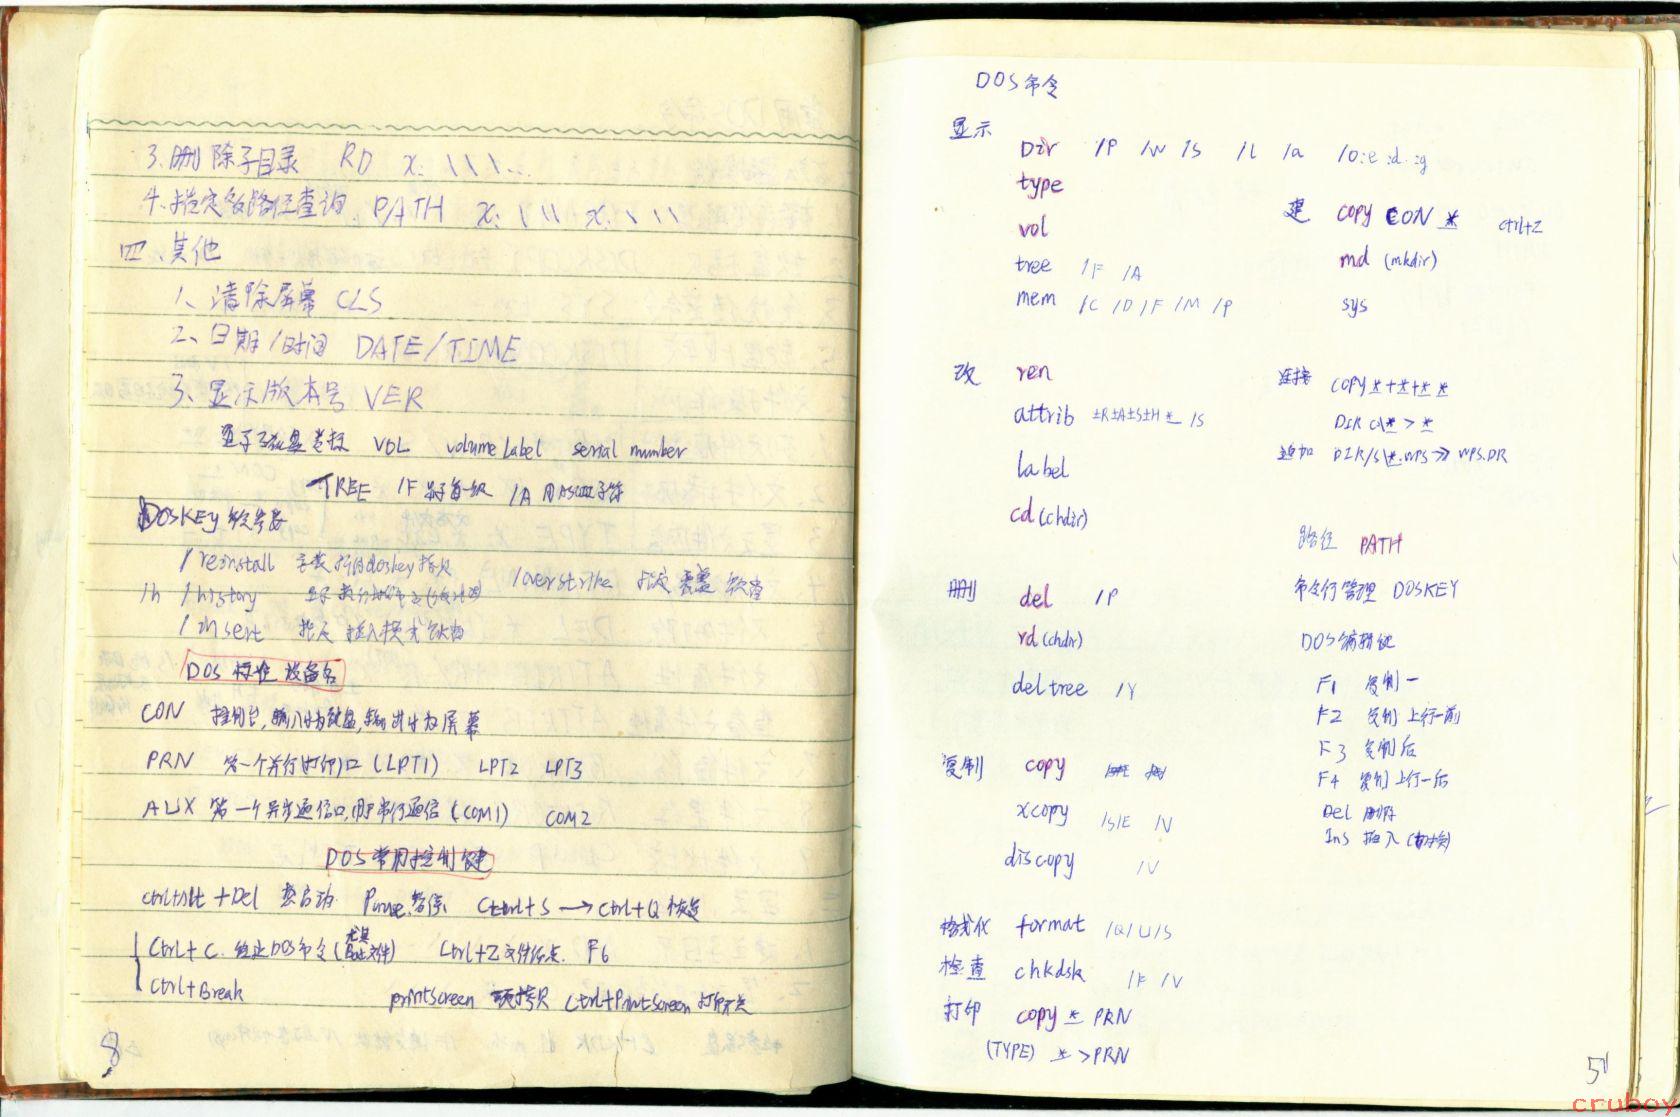 3.删除子目录 RD x:\\\...
4.指定多路径查询 PATH x:\\\ x:\\\
四、其他
1、清除屏幕 CLS
2、日期/时间 DATE/TIME
3、显示版本号 VER
显示磁盘卷标 VOL volume label serial number
TREE /F 显示 /A 用ASCII字符
DOSKEY
/reinstall 安装新的doskey
/overstrike 指定覆盖
/h /history
/insert 指定 插入模式
DOS 标准设备名
CON 控制台,输入时为键盘,输出时为屏幕
PRN 第一个并行打印口(LPT1) LPT2 LPT3
AUX 第一个异步通信口,用于串行通信(COM1) COM2
DOS常用控制键
ctrl+Alt+Del 热启动 Pause暂停 Ctrl+S→Ctrl+Q 恢复
Ctrl+C 终止DOS命令( Ctrl+Z文件结点 F6
Ctrl+Break
printscreen Ctrl+PrintScreen
8
DOS命令
显示
Dir /P /W /S /L /a /o:e :d :g
type
vol
建 copy CON * ctrl+Z
tree /F /A
md (mkdir)
mem /C /D /F /M /P
sys
改 ren
连接 copy *+*+* *
attrib ±R±A±S±H * /S
DIR c:\* > *
label
追加 DIR/S\*.WPS >> WPS.DR
cd (chdir)
路径 PATH
删 del /P
命令行管理 DOSKEY
rd (chdir)
DOS编辑键
deltree /Y
F1 复制一
F2 复制上行一前
F3 复制后
F4 复制上行一后
Del 删除
Ins 插入(切换)
复制 copy
xcopy /S/E /V
discopy /V
格式化 format /Q/U/S
检查 chkdsk /F /V
打印 copy * PRN
(TYPE) * >PRN
51
cruboy